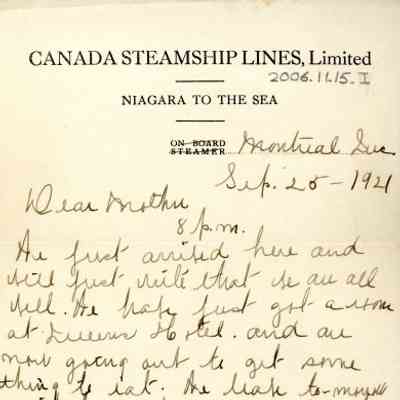 CANADA STEAMSHIP LINES, Limited
2006.11.15.I
NIAGARA TO THE SEA
ON BOARD
STEAMER
Montreal Que
Sep. 25 - 1921
Dear Mother
8 p.m.
We just arrived here and
will just write that we are all
well. We have just got a room
at Queens Hotel. and are
now going out to get some
thing to eat. We leave to-morrow